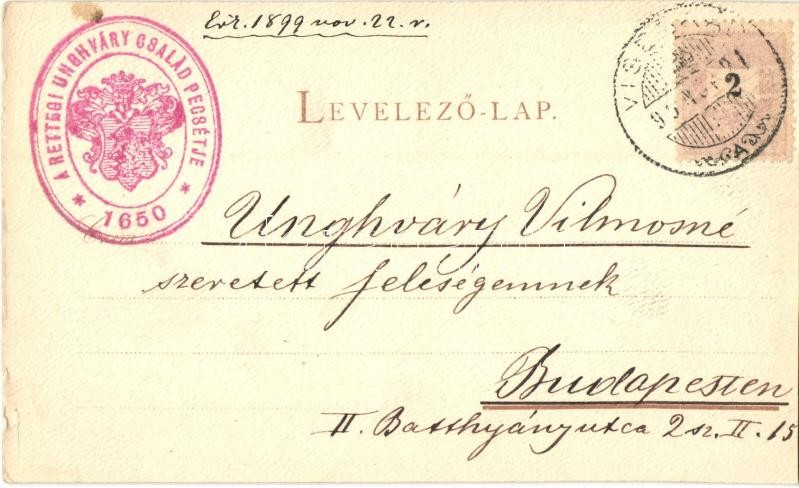 Érk. 1899 nov. 22. v.
A RETTEGI UNGHVÁRY CSALÁD PECSÉTJE
* 1650 *
LEVELEZŐ-LAP.
2
Unghváry Vilmosné
szeretett feleségemnek
Budapesten
II. Batthyány utca 2 sz. II. 15